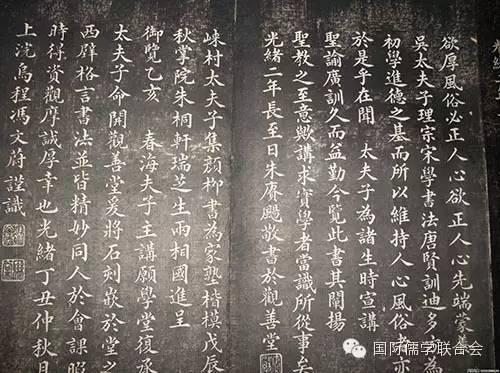 欲厚風俗必正人心欲正人心先端蒙養
吳太夫子理宗宋學書法唐賢訓迪多士為
初學進德之基而所以維持人心風俗者亦
於是乎在聞 太夫子為諸生時宣講
聖諭廣訓久而益勤今覽此書其闡揚
聖教之至意歟講求實學者當識所從事矣
光緒二年長至日朱賡颺敬書於觀善堂
崍村太夫子集顏柳書為家塾楷模戊辰
秋掌院朱桐軒瑞芝生兩相國進呈
御覽乙亥 春海夫子主講願學堂復承
太夫子命開觀善堂爰將石刻嵌於堂之
西壁格言書法並皆精妙同人於會課暇
時得資觀摩誠厚幸也光緒丁丑仲秋月
上浣烏程馮文蔚謹識
国际儒学联合会